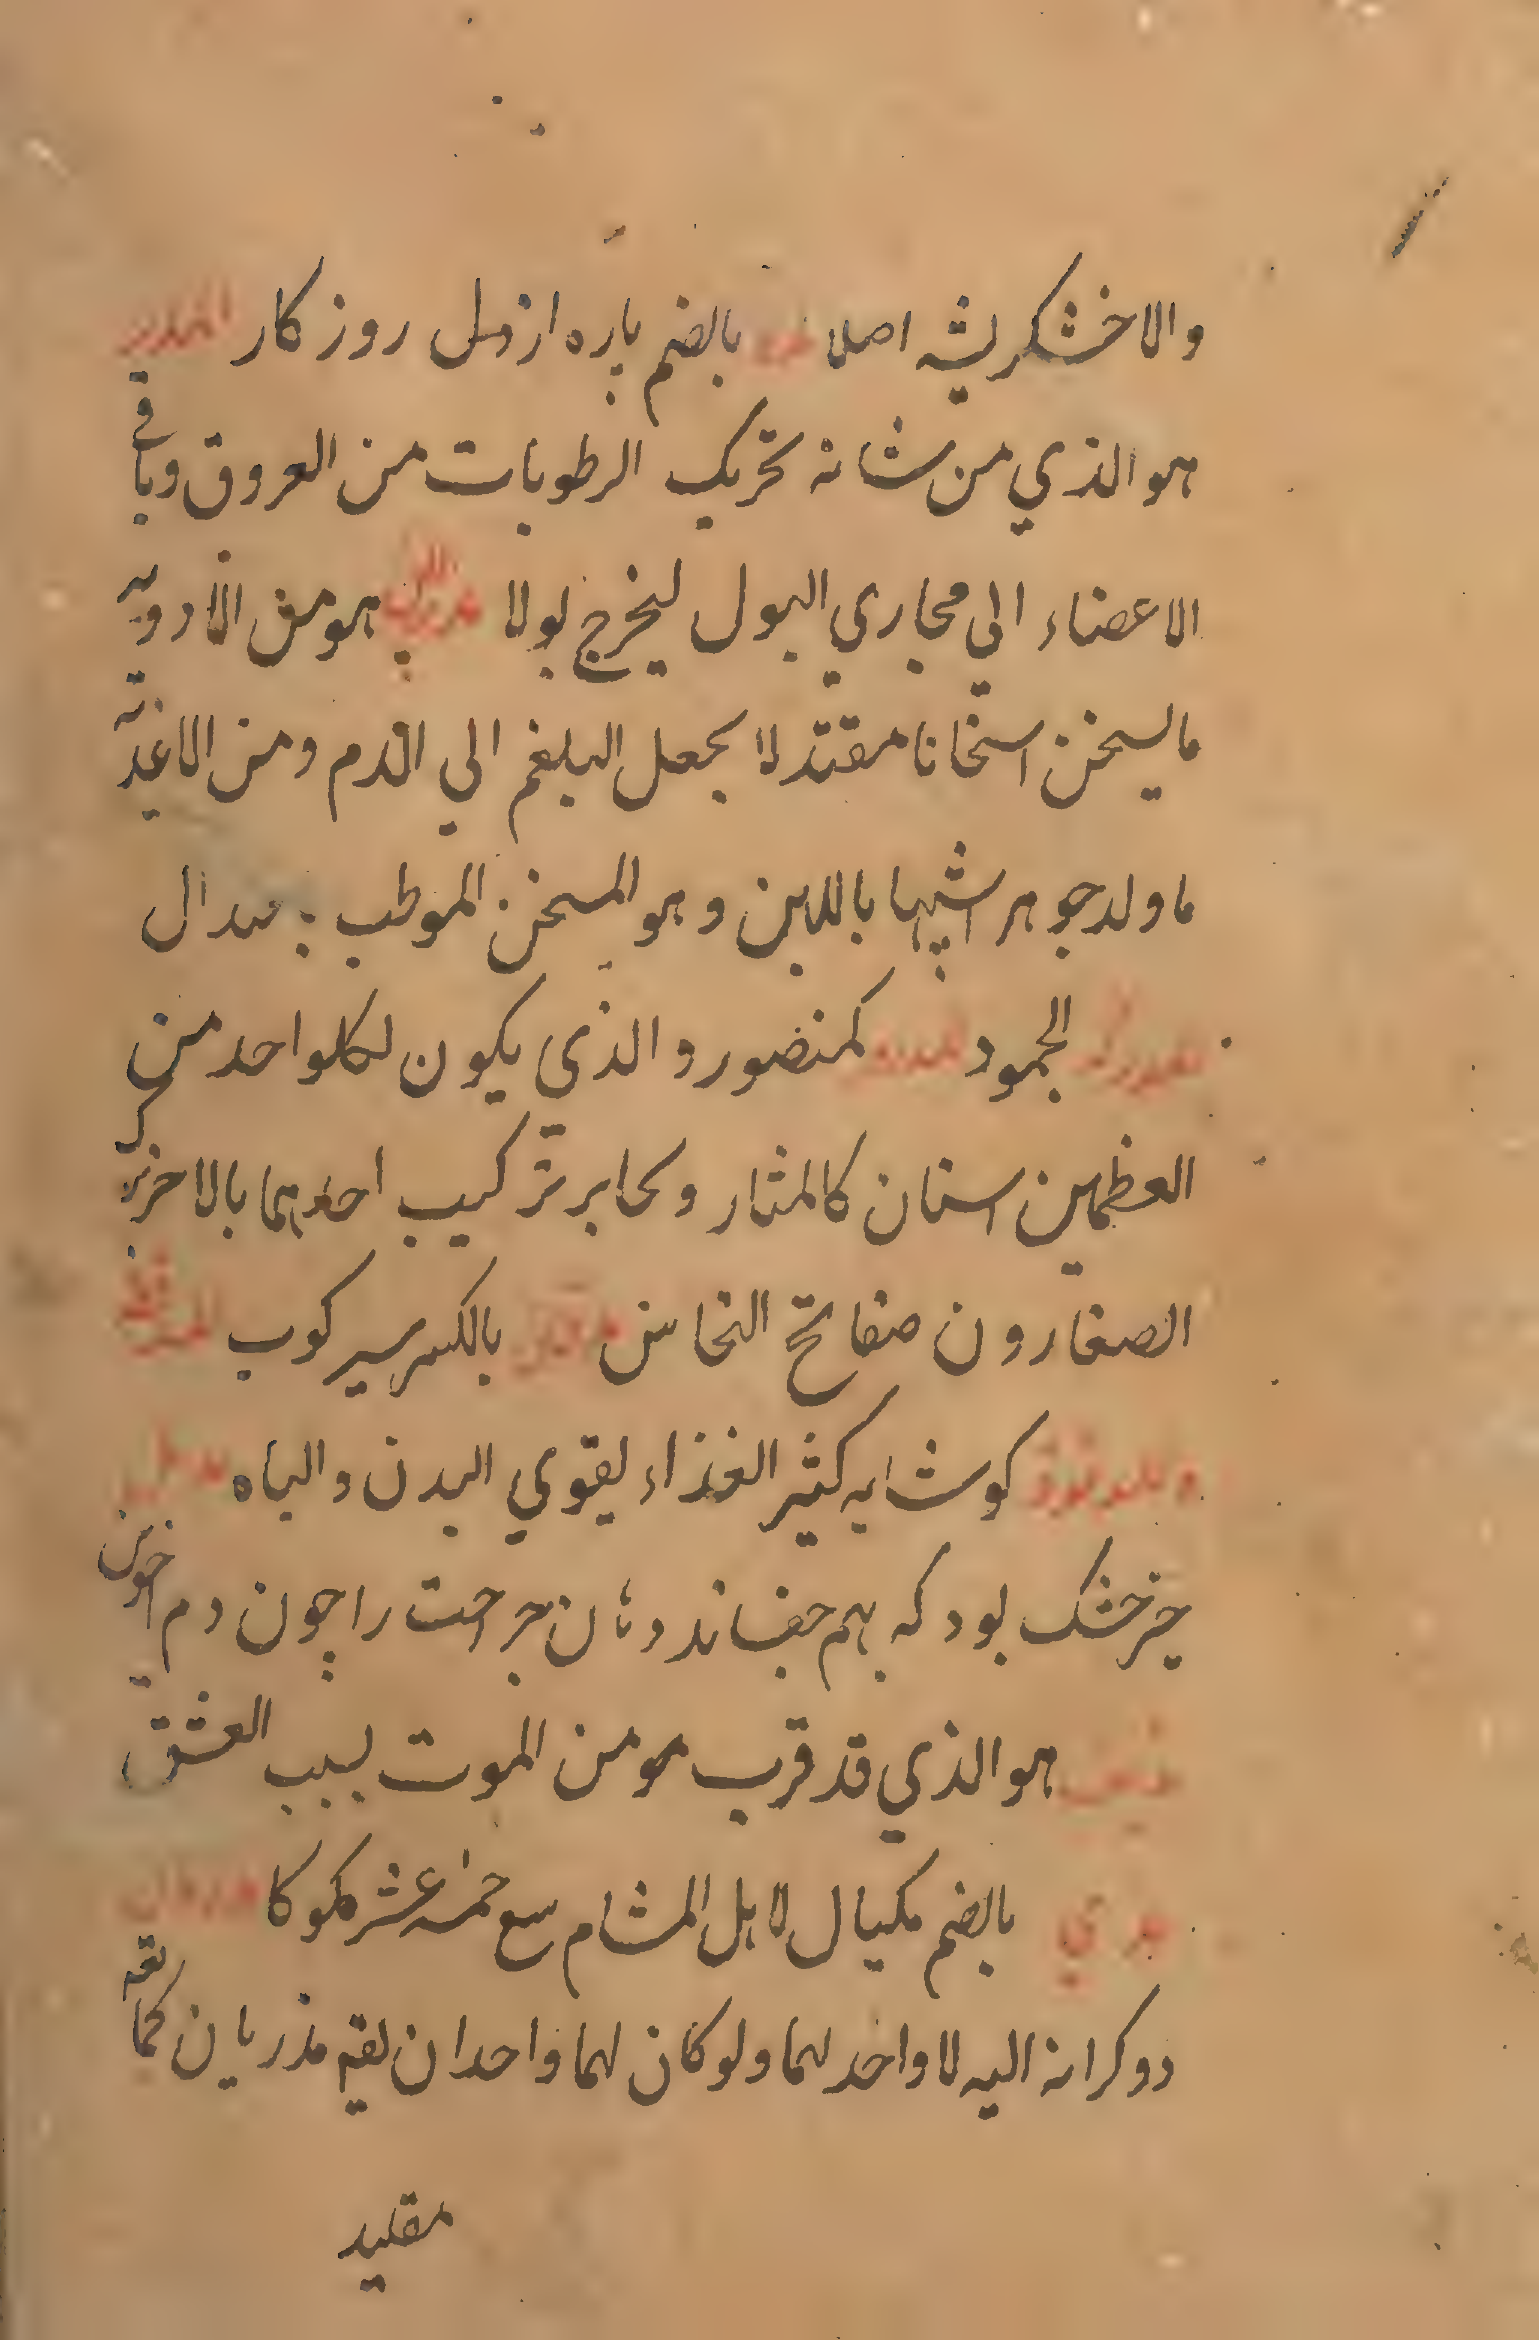 والا خشكريشه اصلا بالضم پاره از دل روز كار المدر
هو الذي من شانه تحريك الرطوبات من العروق وباقي
الاعضاء الي مجاري البول ليخرج بولا هو من الادويه
ما يسخن اسخانا مقتدلا يجعل البلغم الي الدم ومن الاغذية
ما ولد جوهر اشبيها باللبن وهو المسخن الموطب
الجمود كمنضور والذي يكون لكلواحد من
العظمين اسنان كالمثار وكا بر تركيب احدهما بالاخر
الصغارون صفايح النحاس بالكسر سير كوب
كوشابه كثير الغذاء يقوي البدن والباه مدمل
چيز خشك بود كه بهم جفاند دهان جراحت را چون دم اخوين
هو الذي قد قرب هو من الموت بسبب العشق
مدي بالضم مكيال لاهل المشام سع خمسة عشر مكوكا
دو كرانه اليه لا واحد لهما ولو كان لهما واحدا ن لقيه مذريان كما
مقليد